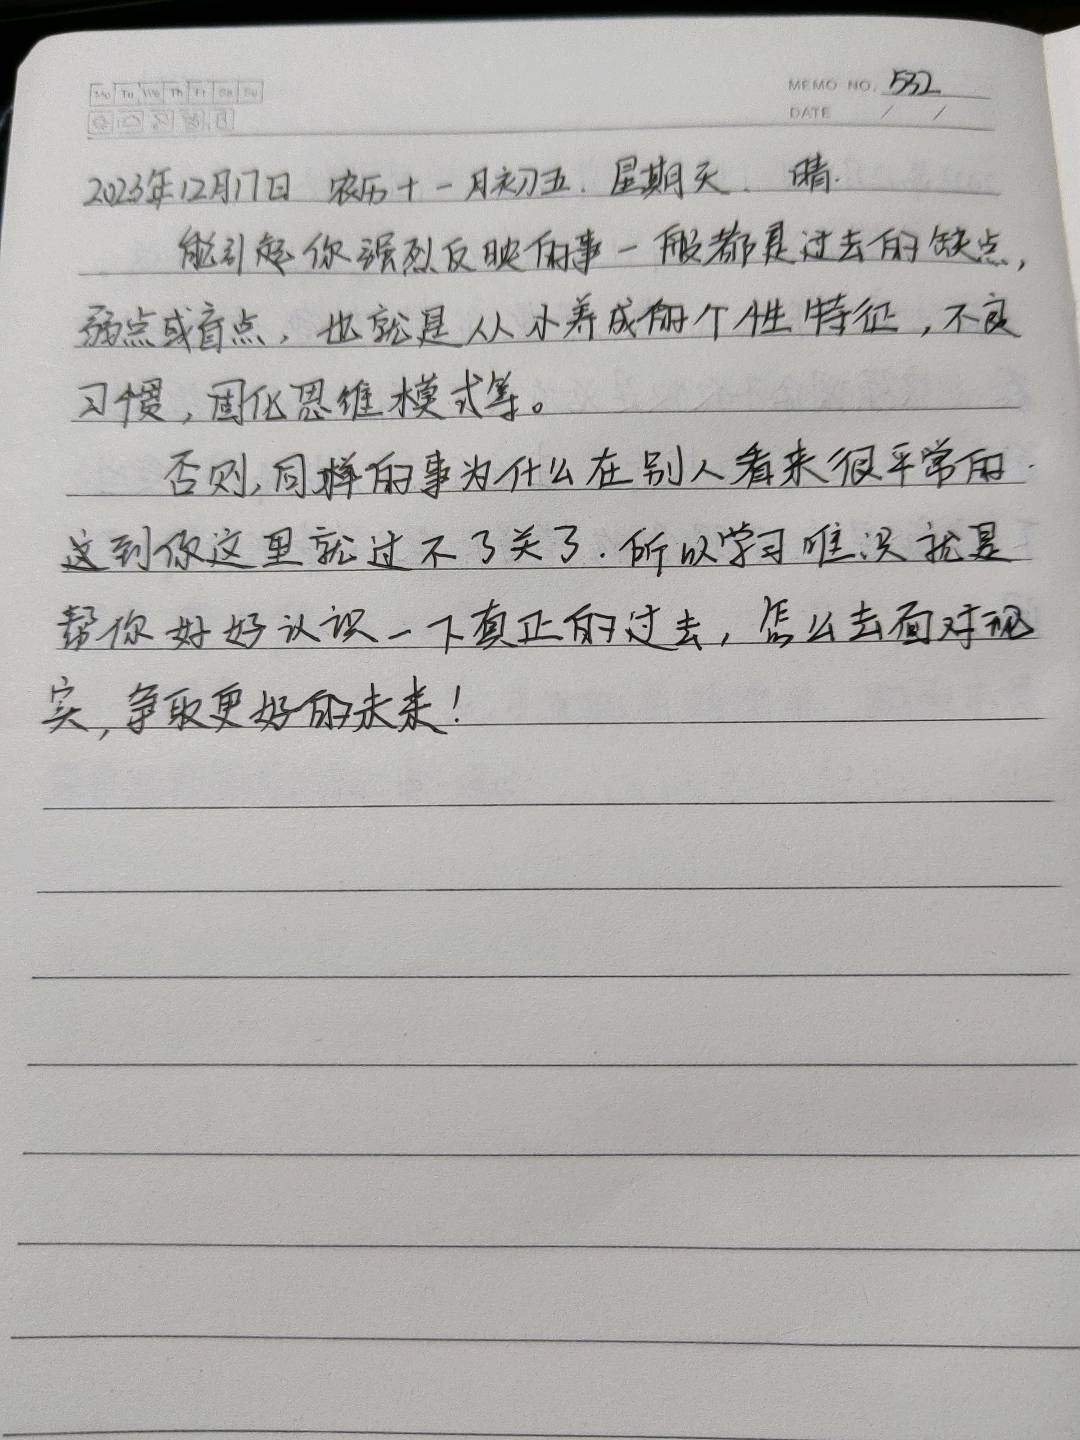 Mo Tu We Th Fr Sa Su
MEMO NO. 532
DATE / /
2023年12月17日 农历十一月初五. 星期天. 晴.
能引起你强烈反映的事一般都是过去的缺点,
弱点或盲点, 也就是从小养成的个性特征, 不良
习惯, 固化思维模式等。
否则, 同样的事为什么在别人看来很平常的.
这到你这里就过不了关了. 所以学习唯识就是
帮你好好认识一下真正的过去, 怎么去面对现
实, 争取更好的未来!